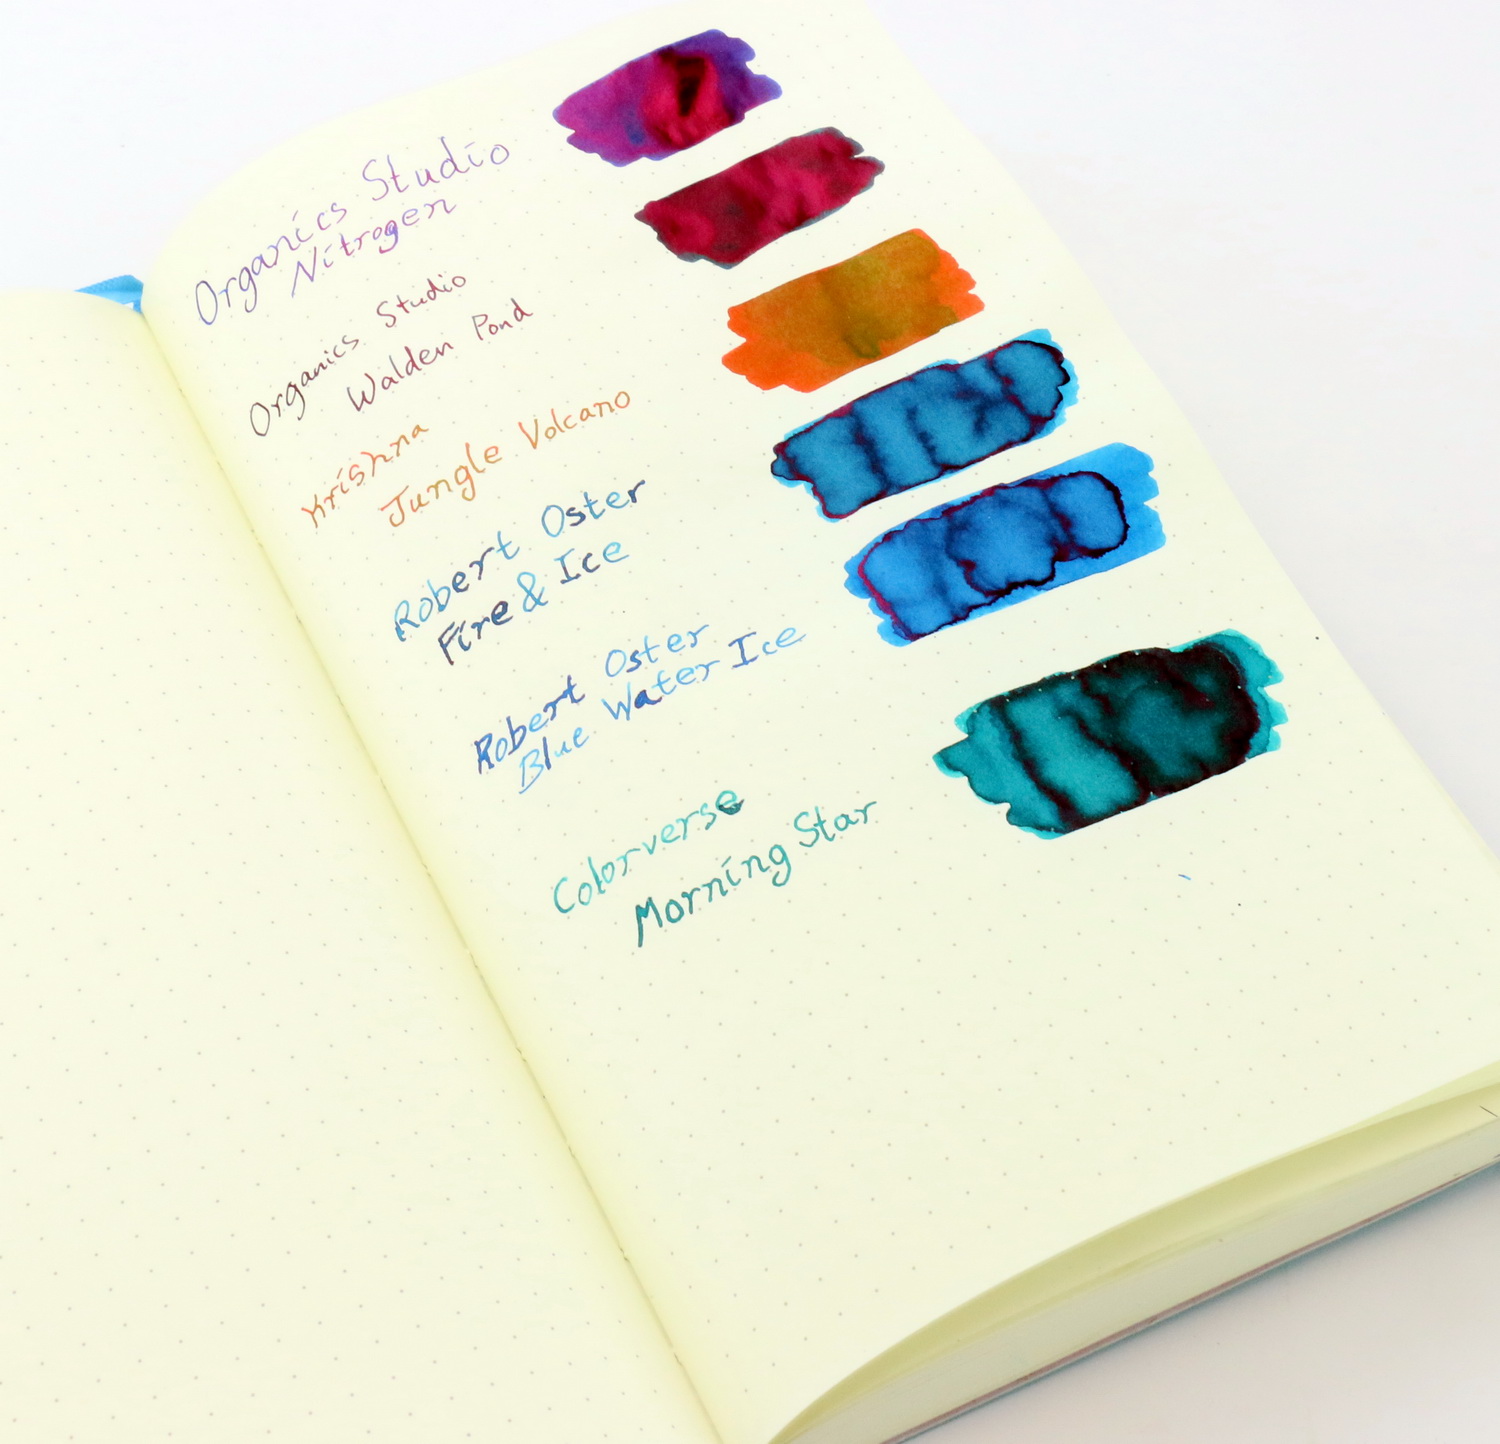 Organics Studio
Nitrogen
Organics Studio
Walden Pond
Krishna
Jungle Volcano
Robert Oster
Fire & Ice
Robert Oster
Blue Water Ice
Colorverse
Morning Star